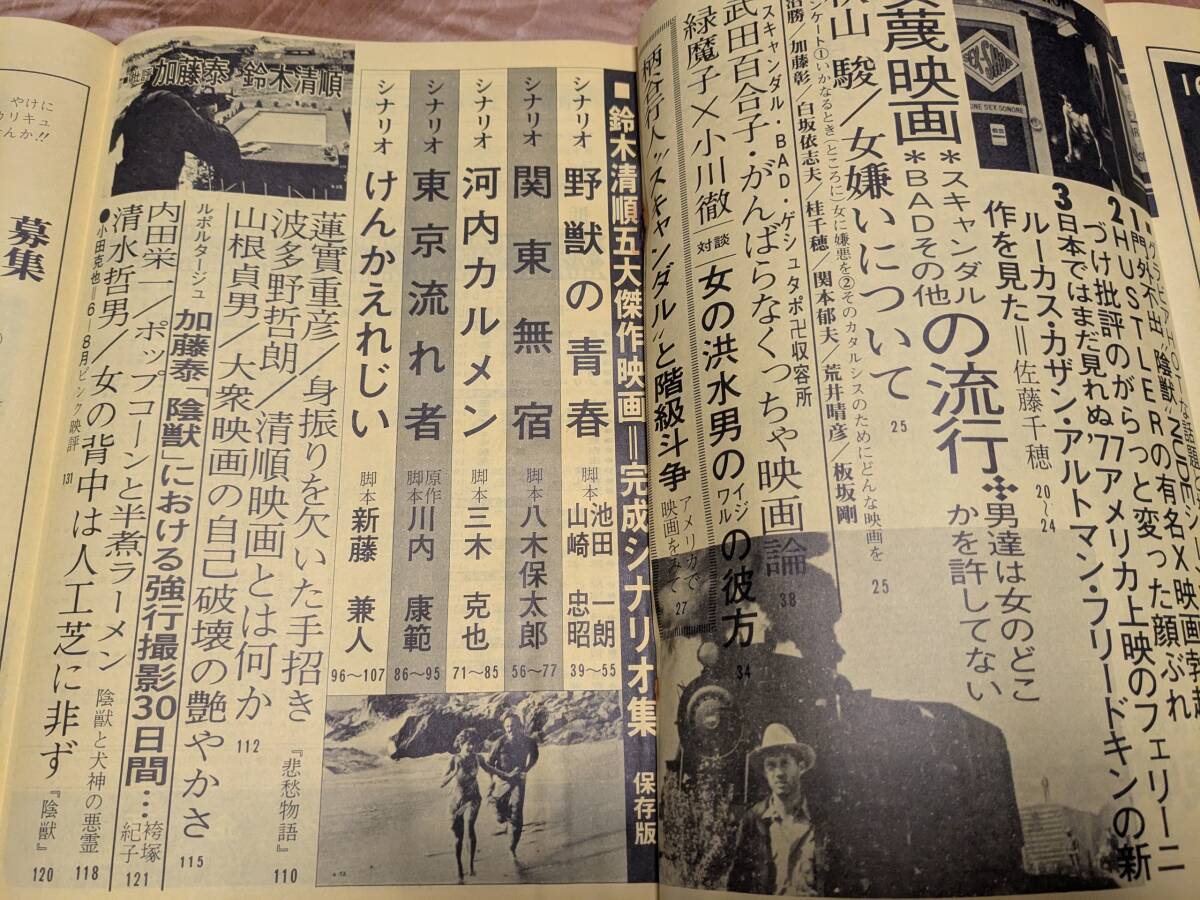 1門外不出“陰獣”NUDEシーン
2HUSTLERの有名X映画勃起
づけ批評のがらっと変った顔ぶれ
3日本ではまだ見れぬ’77アメリカ上映のフェリーニ
ルーカス・カザン・アルトマン・フリードキンの新
作を見た＝佐藤千穂 20〜24
蔑映画
＊スキャンダル
＊BADその他
の流行
男達は女のどこ
かを許してない
秋山 駿／女嫌いについて 25
①いかなるとき(ところに)女に嫌悪を②そのカタルシスのためにどんな映画を 25
治勝／加藤彰／白坂依志夫／桂千穂／関本郁夫／荒井晴彦／板坂剛
スキャンダル・BAD・ゲシュタポ卍収容所
武田百合子・がんばらなくっちゃ映画論 38
緑魔子×小川徹 対談 女の洪水男のイジワルの彼方 34
柄谷行人“スキャンダル”と階級斗争 アメリカで映画をみて 27
■鈴木清順五大傑作映画＝完成シナリオ集 保存版
シナリオ 野獣の青春 脚本 池田一朗 山崎忠昭 39〜55
シナリオ 関東無宿 脚本 八木保太郎 56〜77
シナリオ 河内カルメン 脚本 三木克也 71〜85
シナリオ 東京流れ者 原作脚本 川内康範 86〜95
シナリオ けんかえれじい 脚本 新藤兼人 96〜107
加藤泰 鈴木清順
蓮實重彦／身振りを欠いた手招き 『悲愁物語』 110
波多野哲朗／清順映画とは何か 112
山根貞男／大衆映画の自己破壊の艶やかさ 115
ルポルタージュ 加藤泰「陰獣」における強行撮影30日間… 袴塚紀子 121
内田栄一／ポップコーンと半煮ラーメン 陰獣と犬神の悪霊 118
清水哲男／女の背中は人工芝に非ず 『陰獣』 120
●小田克也＝6−8月ピンク映評 131
やけに
カリキュ
なんか!!
募集